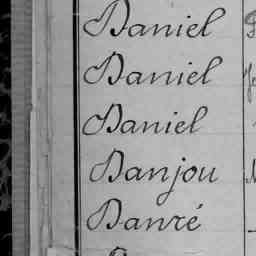 Daniel
Daniel
Daniel
Danjou
Danré